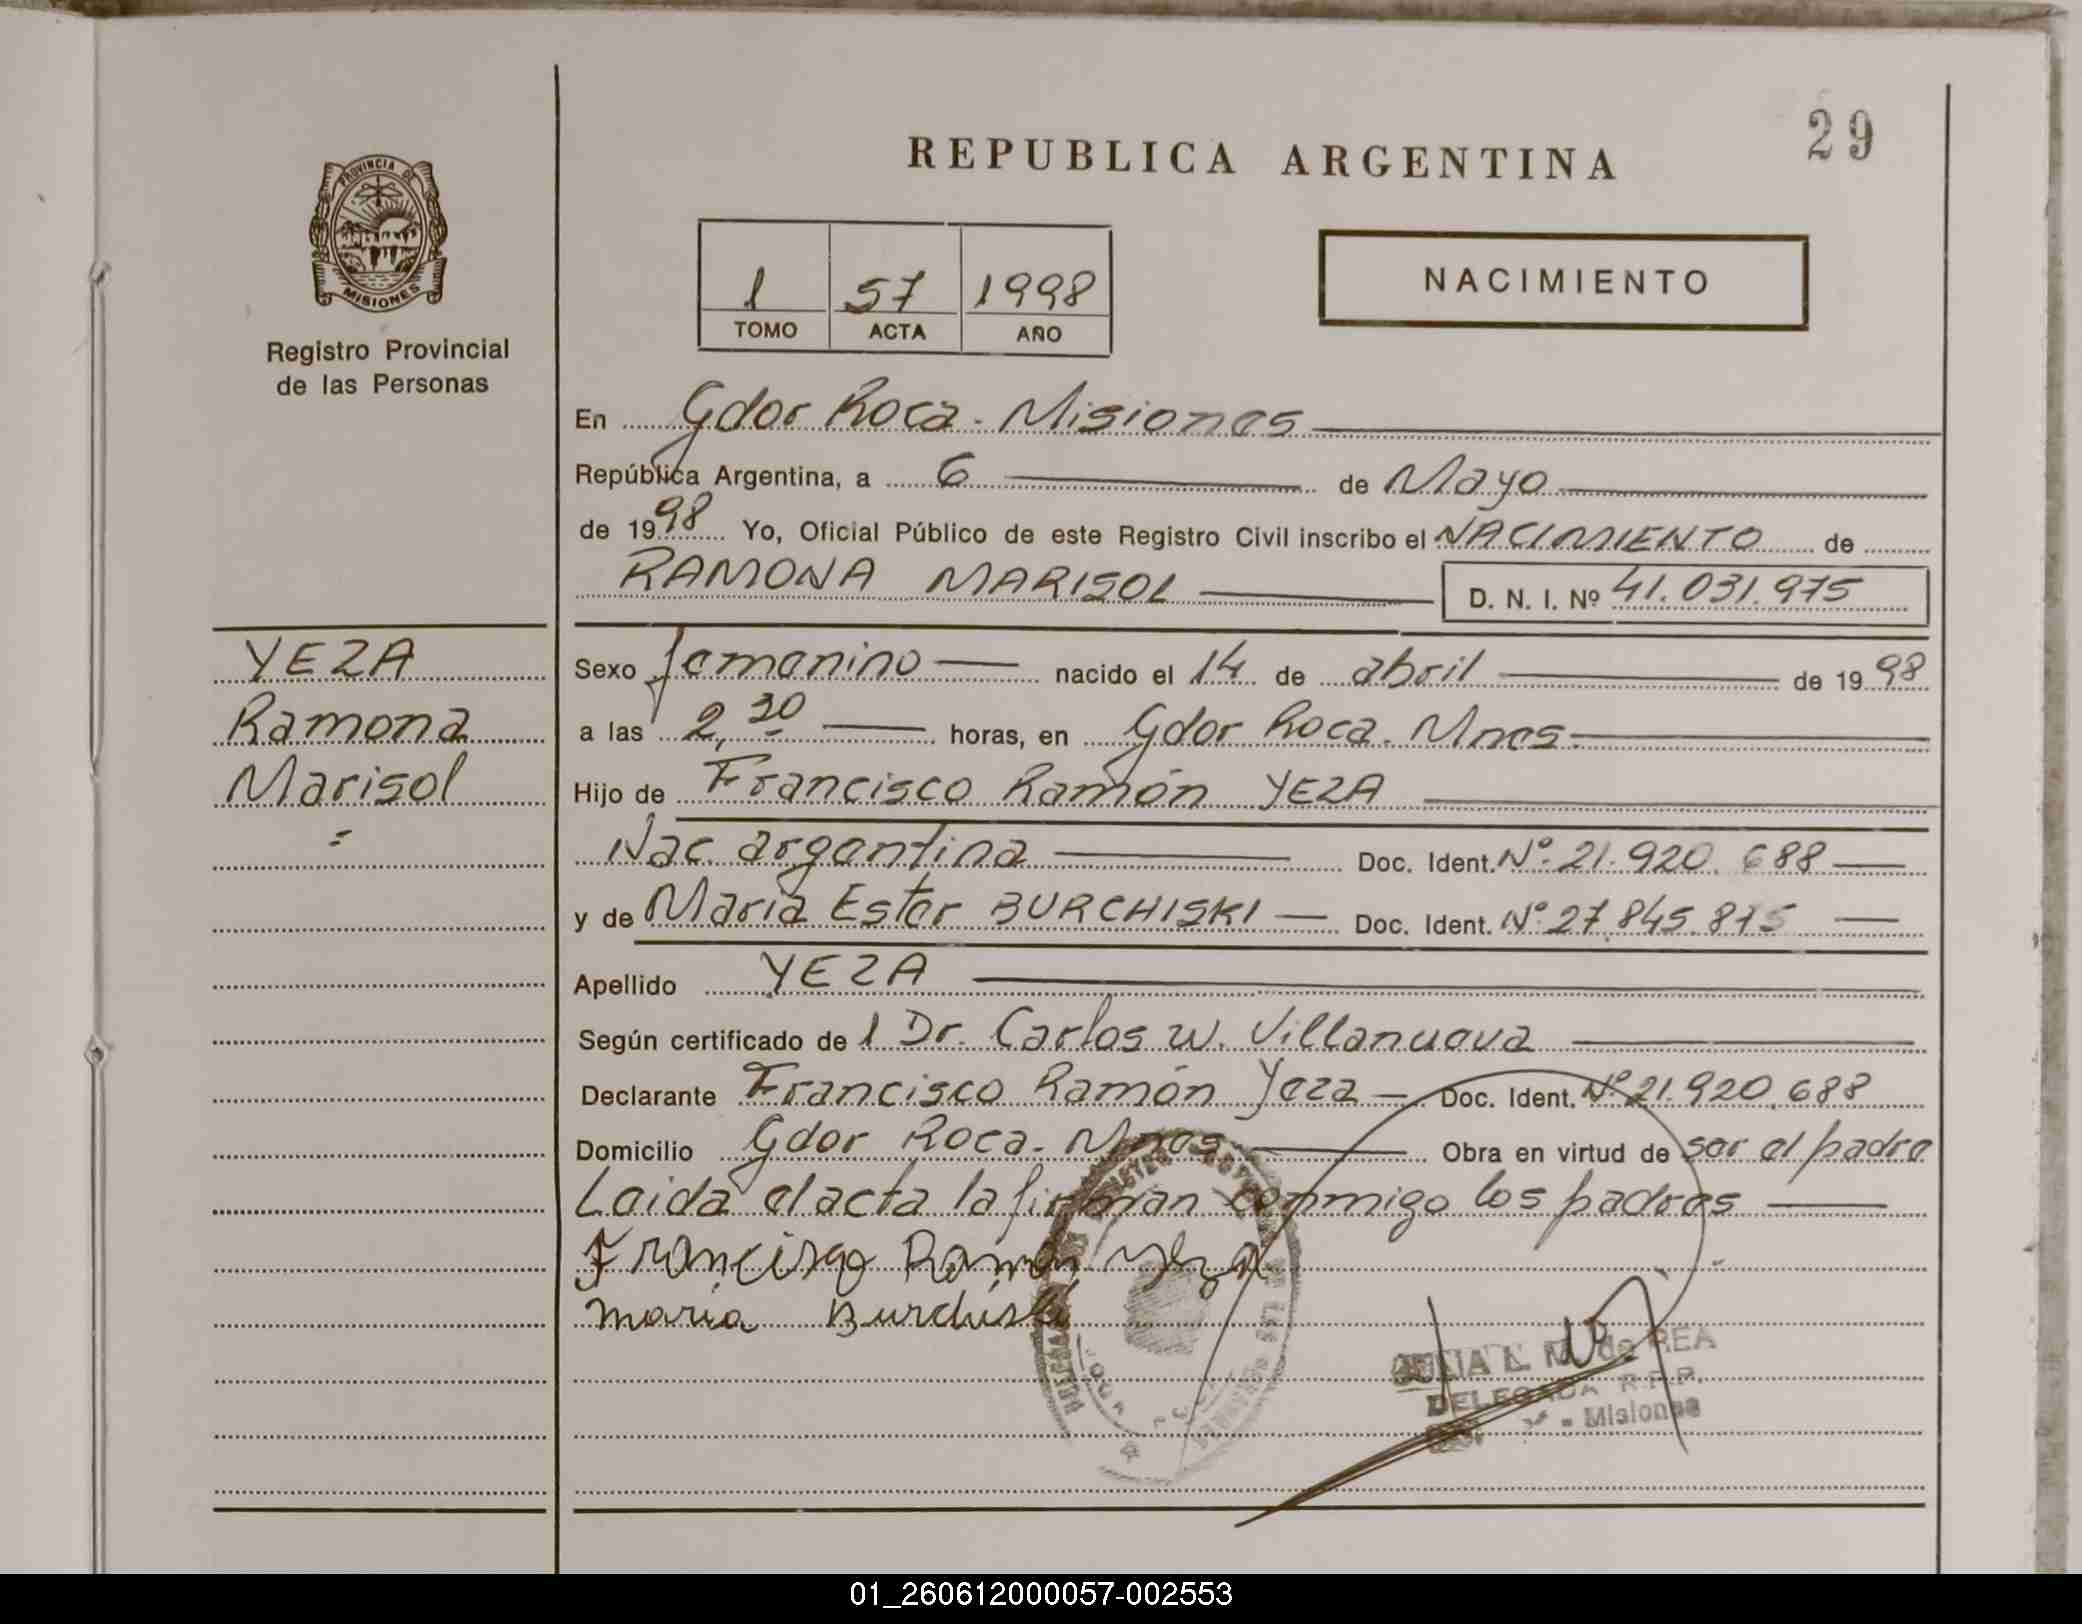 29
REPUBLICA ARGENTINA
PROVINCIA DE
MISIONES
Registro Provincial
de las Personas
1 57 1998
TOMO ACTA AÑO
NACIMIENTO
En Gdor Roca - Misiones
República Argentina, a 6 de Mayo
de 1998 Yo, Oficial Público de este Registro Civil inscribo el NACIMIENTO de
RAMONA MARISOL D. N. I. Nº 41.031.975
YEZA
Ramona
Marisol
=
Sexo femenino nacido el 14 de abril de 1998
a las 2,30 horas, en Gdor Roca. Mnes.
Hijo de Francisco Ramón YEZA
Nac. argentina Doc. Ident. Nº 21.920.688
y de María Ester BURCHISKI Doc. Ident. Nº 27.845.875
Apellido YEZA
Según certificado de 1 Dr. Carlos W. Villanueva
Declarante Francisco Ramón Yeza Doc. Ident. Nº 21.920.688
Domicilio Gdor Roca. Mnes Obra en virtud de ser el padre
Leida el acta la firman conmigo los padres
Francisco Ramon Yeza
maria Burchiski
L. M. de REA
DELEGADA R.P.P.
- Misiones
01_260612000057-002553